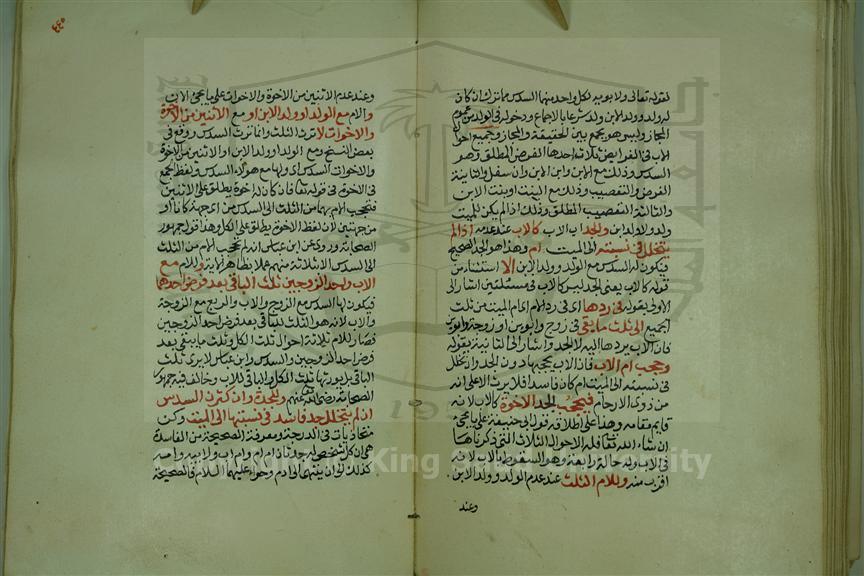 لقوله تعالى ولابويه لكل واحد منهما السدس مما ترك ان كان
له ولد وولد الابن ولد شرعا بالاجماع ودخوله في الولد من عموم
المجاز وليس هو بجمع بين الحقيقة والمجاز وجميع احوال
الاب في الفرايض ثلاثة احدها الفرض المطلق وهو
السدس وذلك مع الابن وابن الابن وان سفل والثانية
الفرض والتعصيب وذلك مع البنت او بنت الابن
والثالثة التعصيب المطلق وذلك اذا لم يكن للميت
ولد ولا ولد ابن والجد اب الاب كالاب عند عدمه اذا لم
يتخلل في نسبته الى الميت ام وهذا هو الجد الصحيح
فيكون له السدس مع الولد وولد الابن الا استثناء من
قوله كالاب يعني الجد ليس كالاب في مسئلتين اشار الى
الاولى بقوله في ردها اى في رد الام ام الميت من ثلث
الجميع الى ثلث ما يبقى في زوج وابوين او زوجة وابوين
فان الاب يردها اليه لا الجد واشار الى الثانية بقوله
وحجب ام الاب فان الاب يحجبها دون الجد وان تخلل
في نسبته الى الميت ام كان فاسدا فلا يرث الا على انه
من ذوى الارحام فيحجب الجد الاخوة كالاب لانه
قايم مقامه وهذا على اطلاقه قول ابى حنيفة على ما يجئ
ان شاء الله تعالى فله الاحوال الثلاث التي ذكرناها
في الاب وله حالة رابعة وهو السقوط بالاب لانه
اقرب منه وللام الثلث عند عدم الولد وولد الابن
وعند
٤٤٥
وعند عدم الاثنين من الاخوة والاخوات على ما يجئ الان
والام مع الولد او ولد الابن او مع الاثنين من الاخوة
والاخوات لا ترث الثلث وانما ترث السدس ووقع في
بعض النسخ ومع الولد او ولد الابن او الاثنين من الاخوة
والاخوات السدس اى ولها مع هؤلاء السدس ولفظ الجمع
في الاخوة في قوله تعالى فان كان له اخوة يطلق على الاثنين
فتحجب الام بهما من الثلث الى السدس من اى جهة كانا او
من جهتين لان لفظ الاخوة يطلق على الكل وهذا قول جمهور
الصحابة وروى عن ابن عباس انه لم يحجب الام من الثلث
الى السدس الا بثلاثة منهم عملا بظاهر الاية وللام مع
الاب واحد الزوجين ثلث الباقي بعد فرض احدهما
فيكون لها السدس مع الزوج والاب والربع مع الزوجة
والاب لانه هو الثلث للباقي بعد فرض احد الزوجين
فصار للام ثلاثة احوال ثلث الكل وثلث ما يبقى بعد
فرض احد الزوجين والسدس وابن عباس لا يرى ثلث
الباقي بل يورثها ثلث الكل والباقي للاب وخالف فيه جمهور
الصحابة رضى الله عنهم وللجدة وان كثرت السدس
ان لم يتخلل جد فاسد في نسبتها الى الميت وكن
متحاذيات في الدرجة ومعرفة الصحيحة من الفاسدة
هي ان كل شخص له جدتان ام ام وام اب ولابيه وامه
كذلك الى ان ينتهى الى ادم وحواء عليهما السلام فالصحيحة
King University